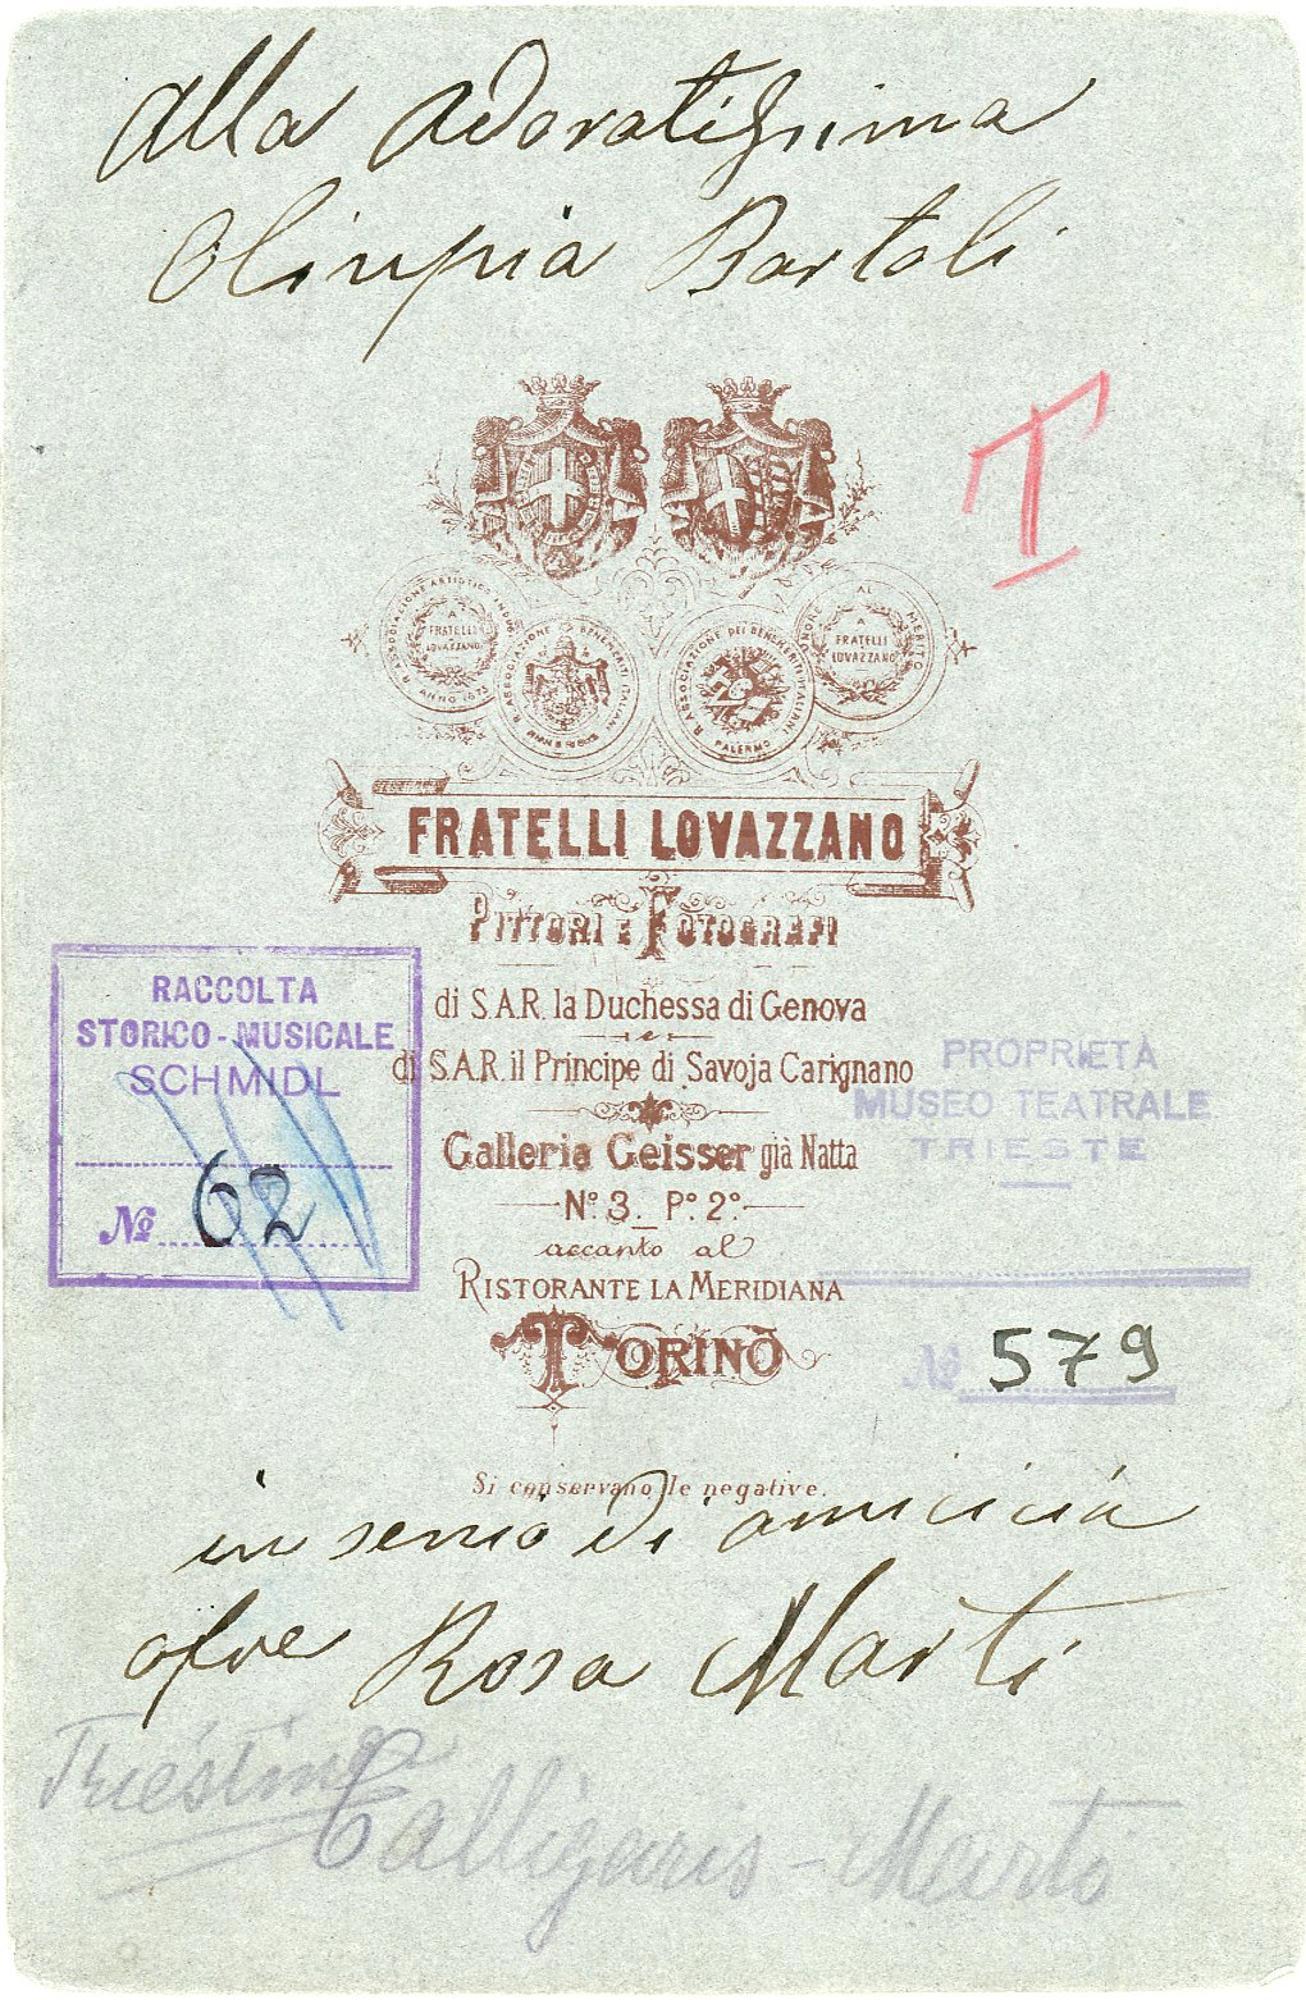 Alla Adoratissima
Olinpia Bartoli
T
R. ASSOCIAZIONE ARTISTICO INDUS
A
FRATELLI
LOVAZZANO
ANNO 1873
R. ASSOCIAZIONE BENEMERITI ITALIANI
R. ASSOCIAZIONE DEI BENEMERITI ITALIANI
PALERMO
ONORE AL MERITO
A
FRATELLI
LOVAZZANO
FRATELLI LOVAZZANO
PITTORI E FOTOGRAFI
di S.A.R. la Duchessa di Genova
di S.A.R. il Principe di Savoja Carignano
Galleria Geisser già Natta
Nº 3_ Pº 2º
accanto al
RISTORANTE LA MERIDIANA
TORINO
Si conservano le negative.
RACCOLTA
STORICO-MUSICALE
SCHMIDL
Nº 62
PROPRIETÀ
MUSEO TEATRALE
TRIESTE
Nº 579
in senio di amicicia
ofre Rosa Marti
Triestina
Calligaris - Marti